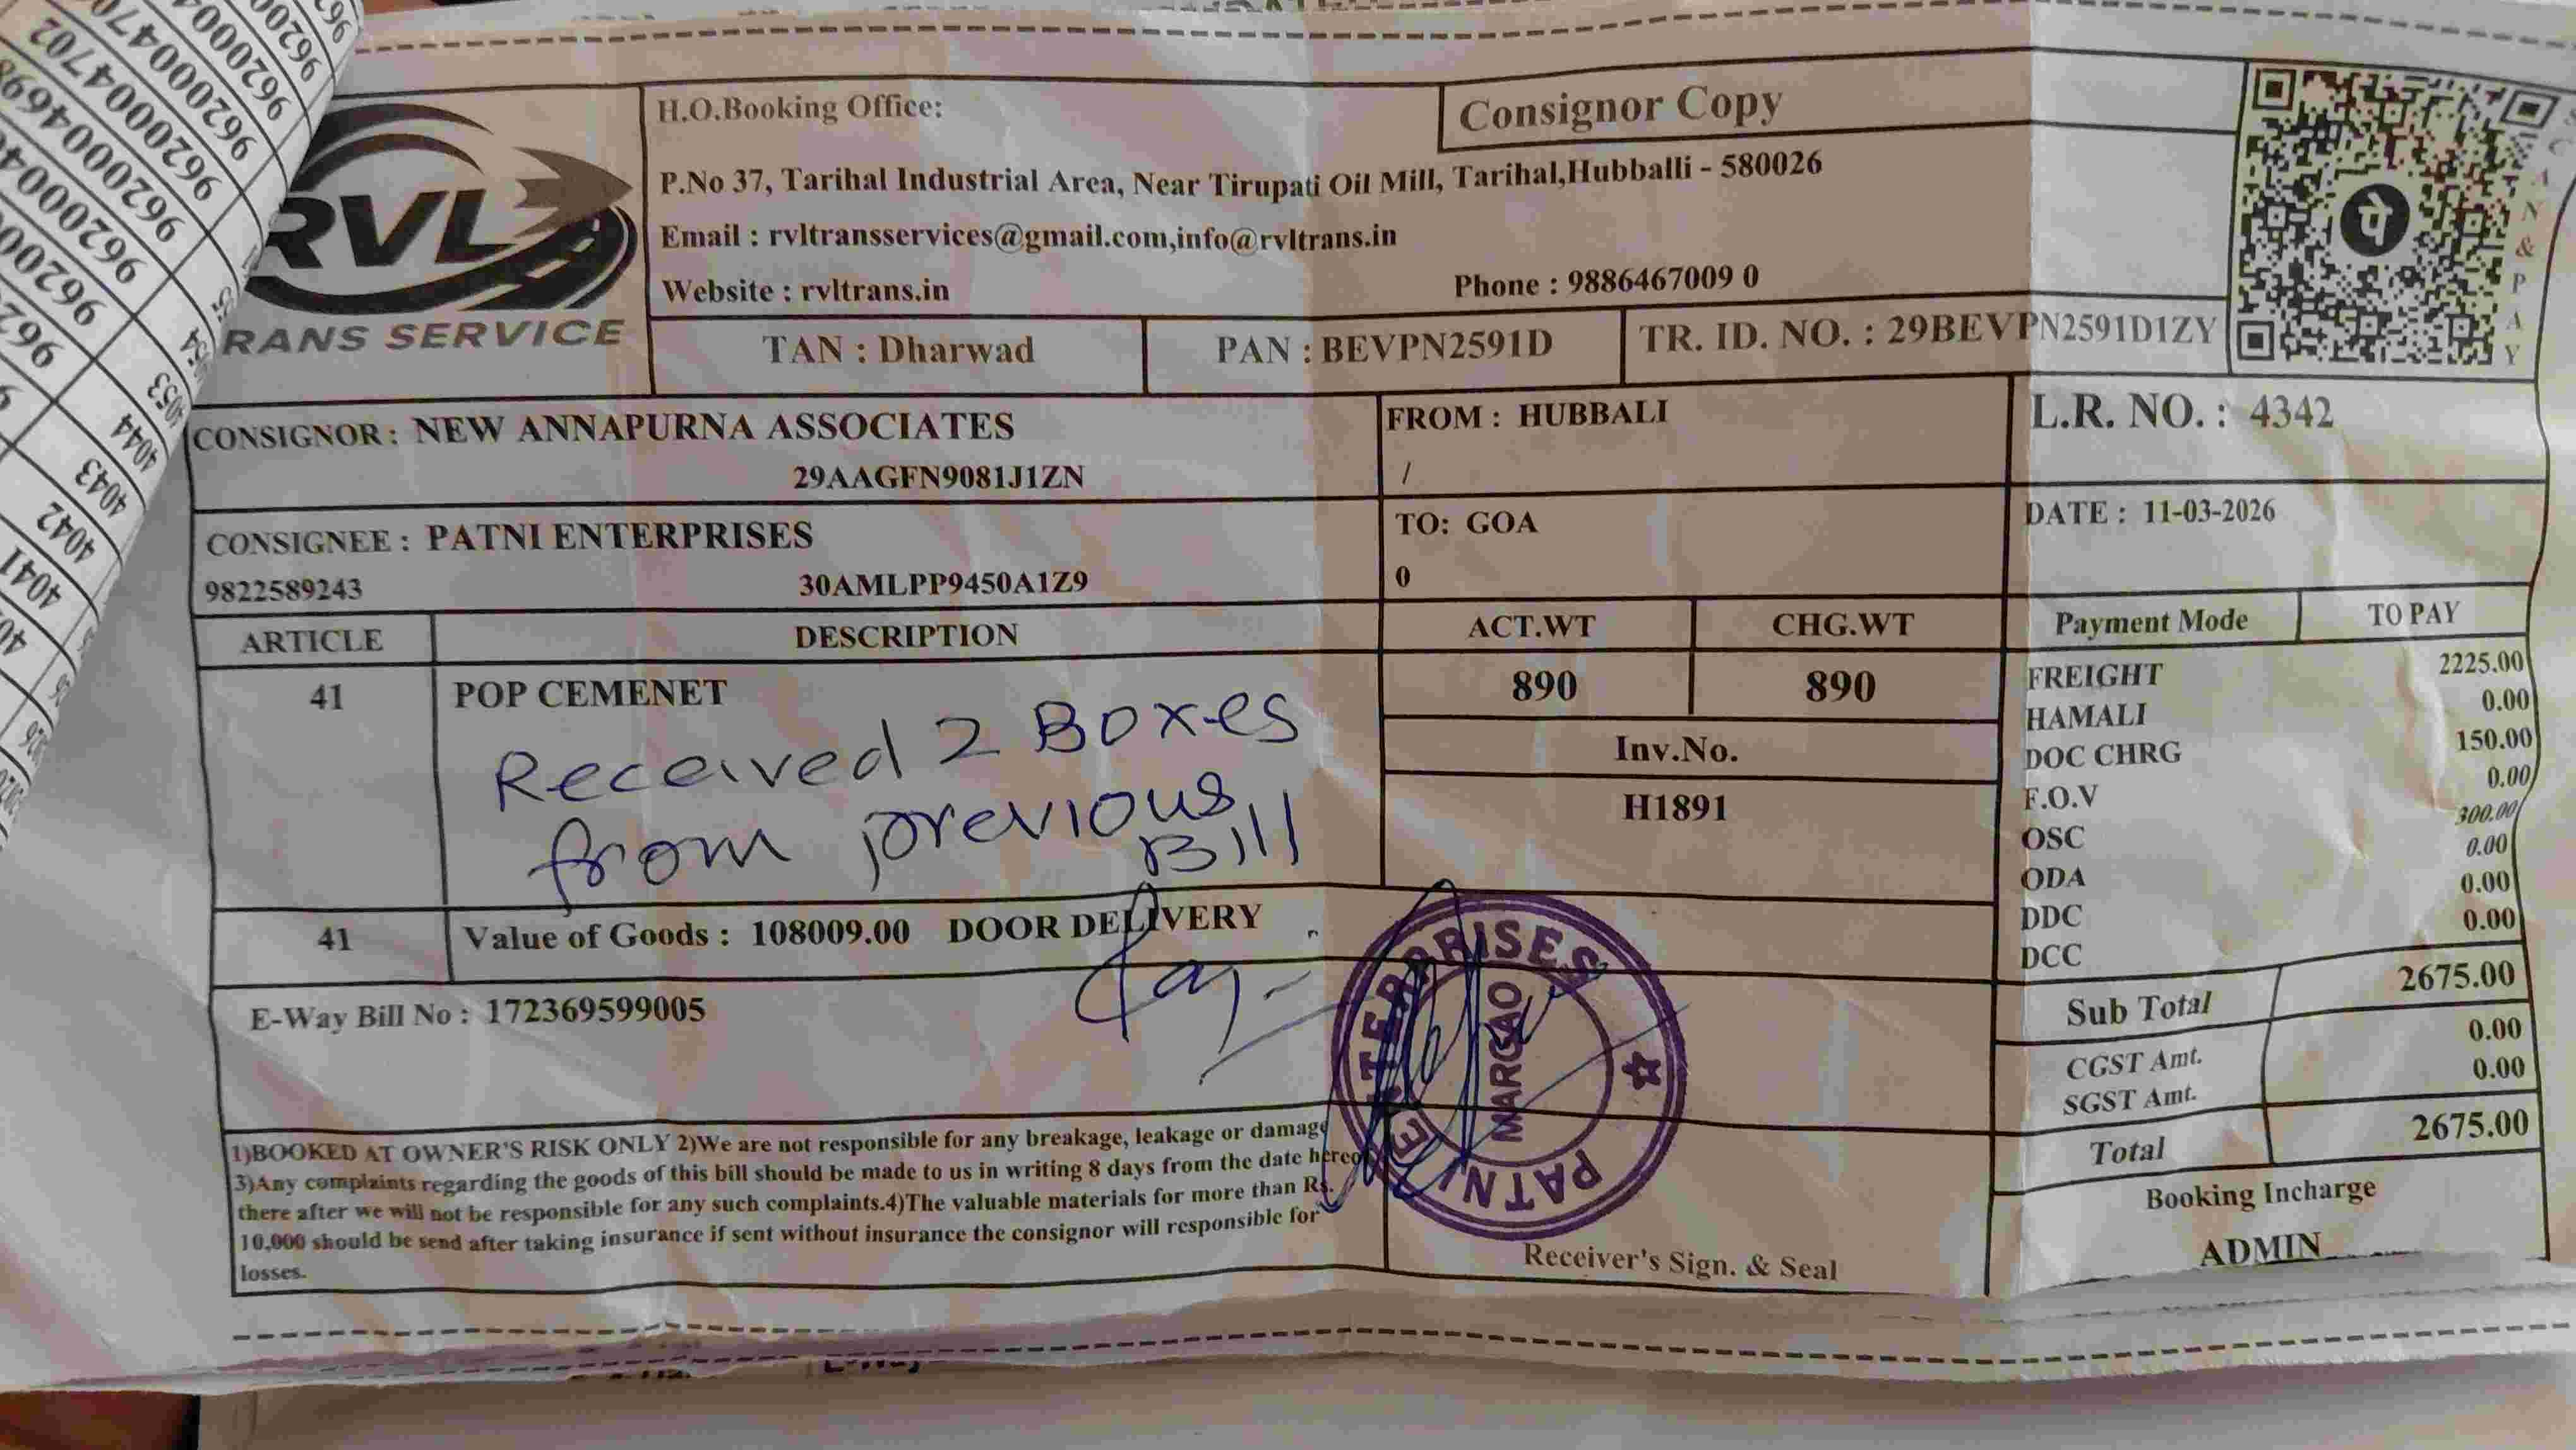 RVL
RANS SERVICE
H.O.Booking Office:
Consignor Copy
P.No 37, Tarihal Industrial Area, Near Tirupati Oil Mill, Tarihal,Hubballi - 580026
Email : rvltransservices@gmail.com,info@rvltrans.in
Website : rvltrans.in
Phone : 9886467009 0
SCAN & PAY
पे
TAN : Dharwad
PAN : BEVPN2591D
TR. ID. NO. : 29BEVPN2591D1ZY
CONSIGNOR: NEW ANNAPURNA ASSOCIATES
29AAGFN9081J1ZN
FROM : HUBBALI
/
L.R. NO. : 4342
CONSIGNEE : PATNI ENTERPRISES
9822589243 30AMLPP9450A1Z9
TO: GOA
0
DATE : 11-03-2026
ARTICLE DESCRIPTION ACT.WT CHG.WT
Payment Mode TO PAY
41 POP CEMENET 890 890
Received 2 Boxes
from previous
Bill
Inv.No.
H1891
FREIGHT 2225.00
HAMALI 0.00
DOC CHRG 150.00
F.O.V 0.00
OSC 300.00
ODA 0.00
DDC 0.00
DCC 0.00
41 Value of Goods : 108009.00 DOOR DELIVERY
E-Way Bill No : 172369599005
Sub Total 2675.00
CGST Amt. 0.00
SGST Amt. 0.00
Total 2675.00
PATNI ENTERPRISES
MARGAO
1)BOOKED AT OWNER'S RISK ONLY 2)We are not responsible for any breakage, leakage or damage
3)Any complaints regarding the goods of this bill should be made to us in writing 8 days from the date hereo
there after we will not be responsible for any such complaints.4)The valuable materials for more than Rs.
10,000 should be send after taking insurance if sent without insurance the consignor will responsible for
losses.
Receiver's Sign. & Seal
Booking Incharge
ADMIN
4053
4044
4043
4042
4041